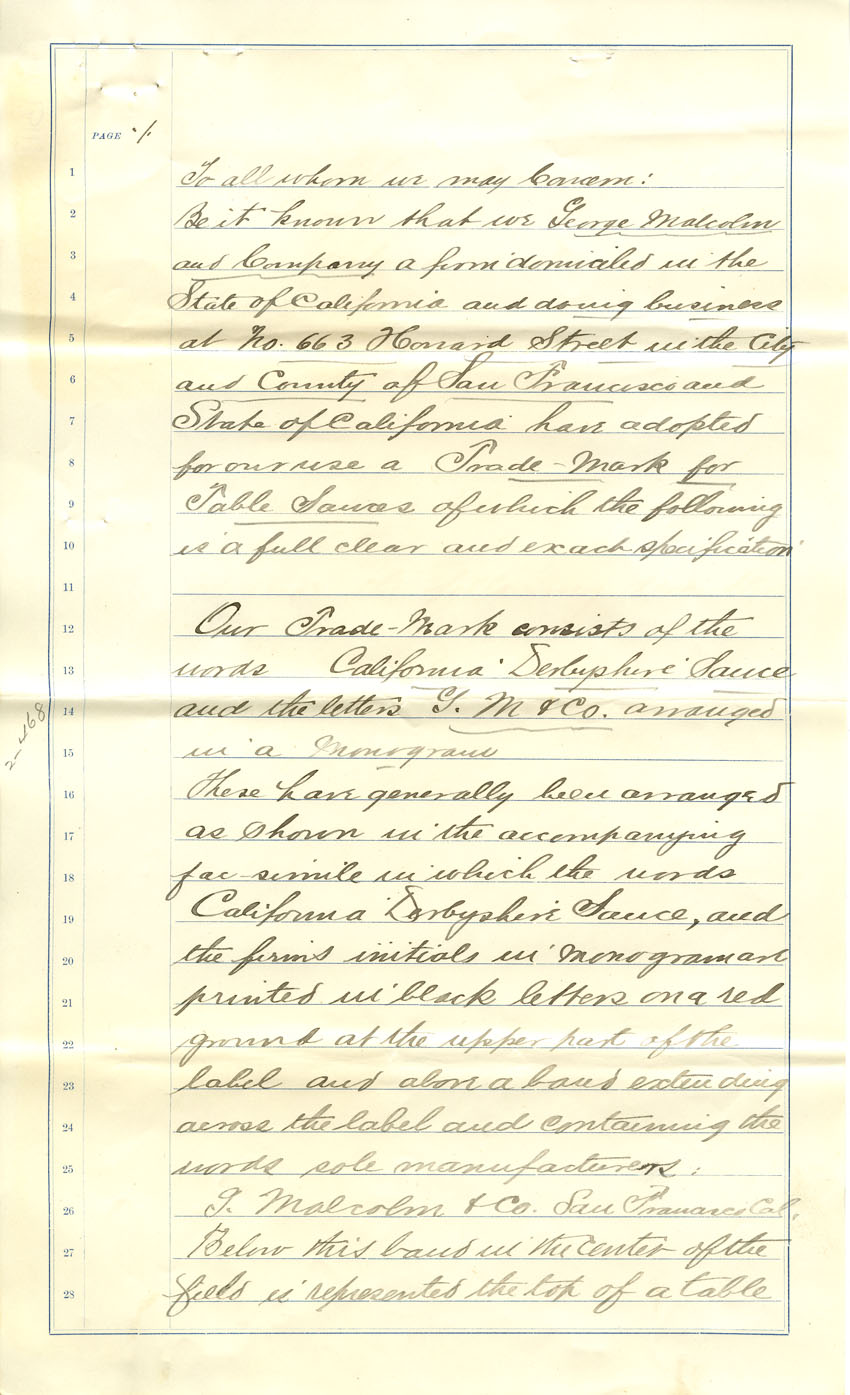 PAGE 1.
1 To all whom we may Concern:
2 Be it known that we George Malcolm
3 and Company a firm domiciled in the
4 State of California and doing business
5 at No. 663 Howard Street in the City
6 and County of San Francisco and
7 State of California have adopted
8 for our use a Trade-Mark for
9 Table Sauces of which the following
10 is a full clear and exact specification
11
12 Our Trade-Mark consists of the
13 words California Derbyshire Sauce
14 and the letters G. M & Co. arranged
15 in a Monogram
16 These have generally been arranged
17 as shown in the accompanying
18 fac-simile in which the words
19 California Derbyshire Sauce, and
20 the firms initials in monogram are
21 printed in black letters on a red
22 ground at the upper part of the
23 label and above a band extending
24 across the label and containing the
25 words sole manufacturers:
26 G. Malcolm & Co. San Francisco Cal.
27 Below this band in the center of the
28 field is represented the top of a table
2-468